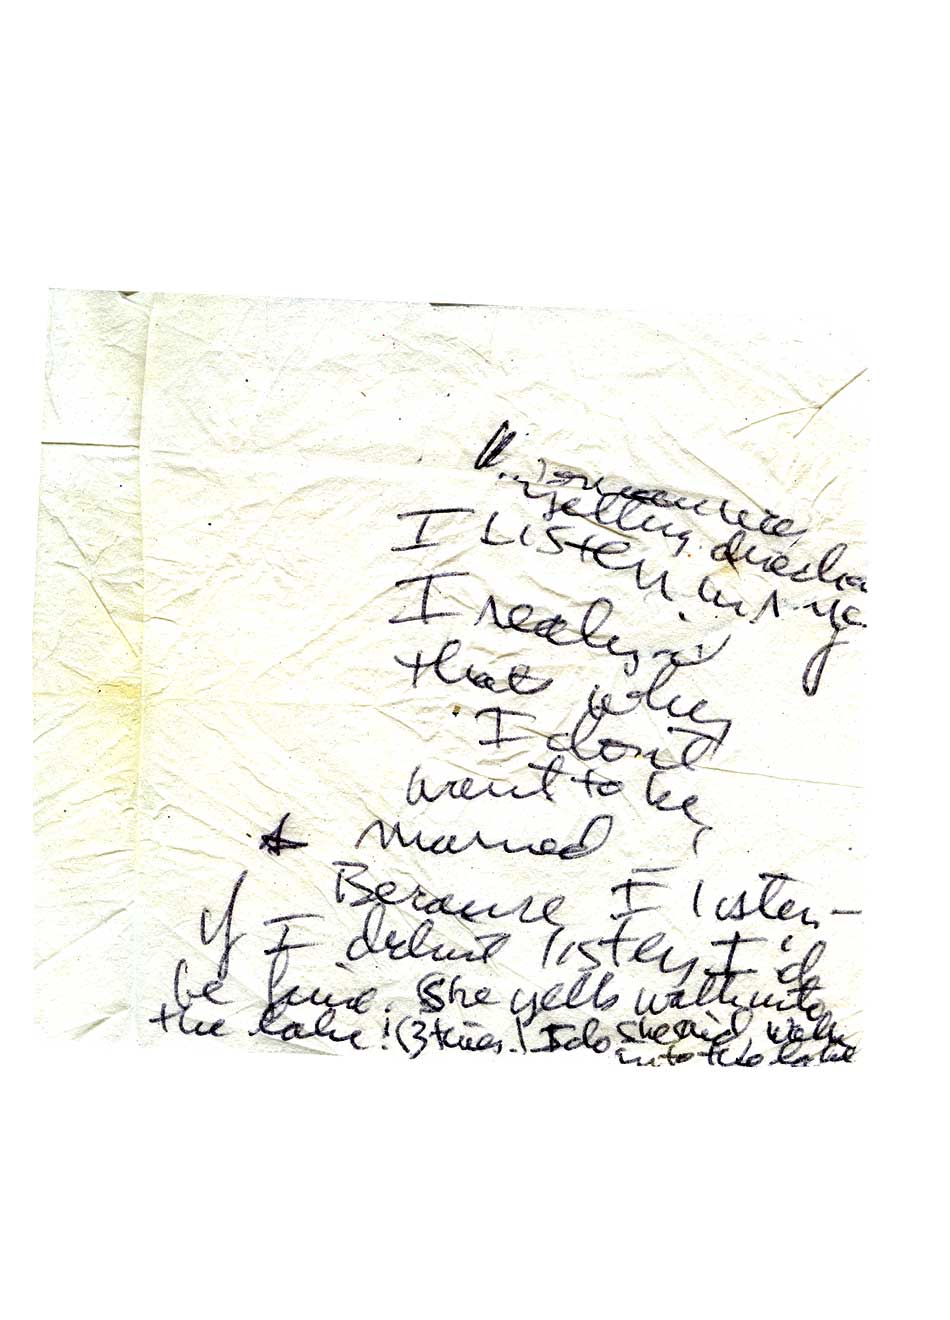 yelling direction
I LISTEN
I really
that's why
I don't
want to be
married
Because I listen –
if I didn't listen I'd
be fine. She yells walk into
the lake! (3 times.) I do she said walk
into the lake